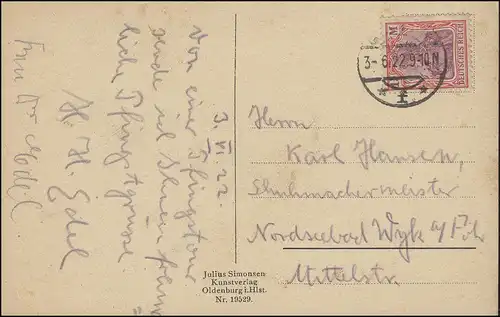 3. VI. 22.
Von einer Pfingsttour
sende ich Ihnen
liche Pfingstgrüsse.
H. H. Edel
Frau Edel
3.-6.22.9-10N.
DEUTSCHES REICH
Herrn
Karl Hansen,
Schuhmachermeister
Nordseebad Wyk a/Föhr
Mittelstr.
Julius Simonsen
Kunstverlag
Oldenburg i. Hlst.
Nr. 19529.